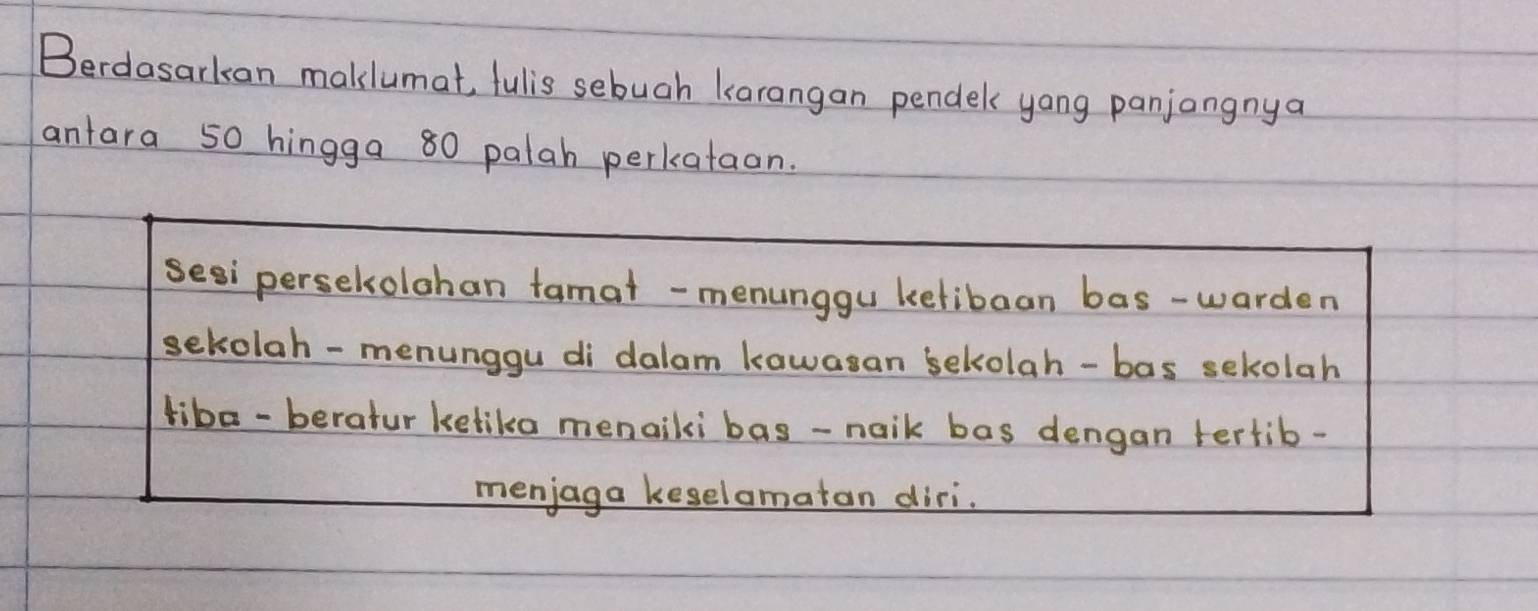 Berdasarkan maklumat, tulis sebuah karangan pendek yang panjangnya
antara 50 hingga 80 patah perkataan.
sesi persekolahan tamat - menunggu ketibaan bas - warden
sekolah - menunggu di dalam kawasan sekolah - bas sekolah
tiba - beratur ketika menaiki bas - naik bas dengan tertib -
menjaga keselamatan diri.